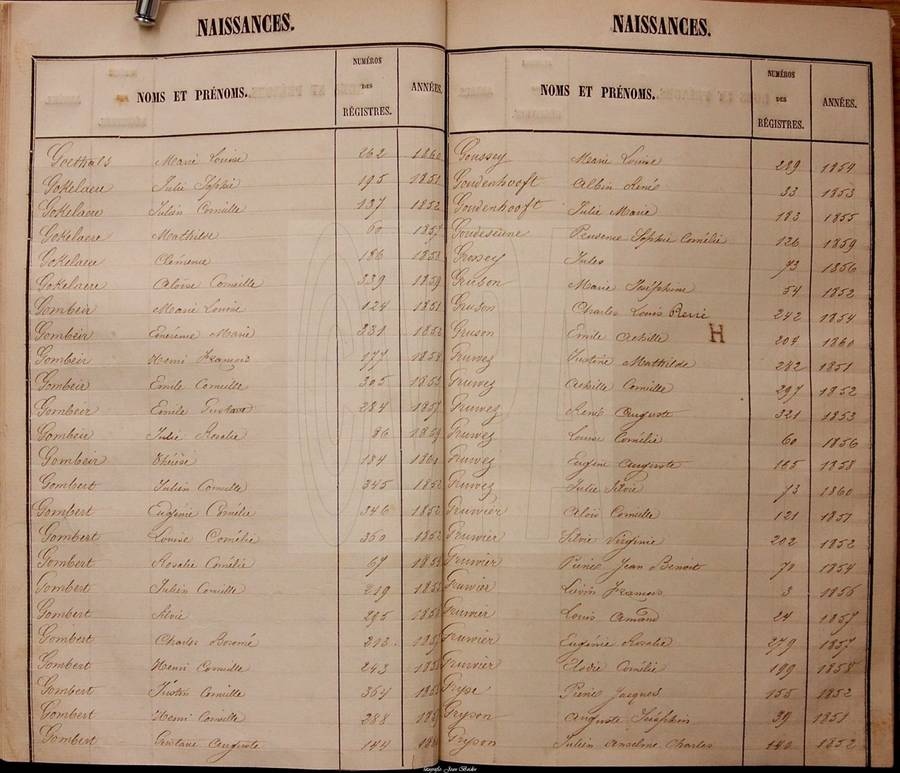 NAISSANCES.
NOMS ET PRÉNOMS. NUMÉROS DES RÉGISTRES. ANNÉES.
Goethals Marie Louise 262 1860
Gokelaere Julie Sophie 195 1851
Gokelaere Julien Camille 137 1852
Gokelaere Mathilde 60 1857
Gokelaere Clémence 186 1858
Gokelaere Aloïse Camille 339 1859
Gombeir Marie Louise 124 1851
Gombeir Marie 231 1852
Gombeir Henri François 177 1854
Gombeir Emile Camille 305 1855
Gombeir Emile Gustave 284 1857
Gombeir Julie Rosalie 86
Gombeir Thérèse 184 1860
Gombert Julien Camille 345 1852
Gombert Eugénie Camélie 346 1852
Gombert Louise Camélie 360 1852
Gombert Rosalie Camélie 67
Gombert Julien Camille 219
Gombert Silvie 295
Gombert Charles 203
Gombert Henri Camille 243
Gombert Justin Camille 364
Gombert Henri Camille 288
Gombert Gustave Auguste 144
NAISSANCES.
NOMS ET PRÉNOMS. NUMÉROS DES RÉGISTRES. ANNÉES.
Goussey Marie Louise 289 1854
Goudenhooft Albin René 33 1853
Goudenhooft Julie Marie 183 1855
Goudeseune Prudence Sophie Camélie 126 1859
Gressey Jules 73 1856
Gruson Marie Joséphine 54 1852
Gruson Charles Louis Pierre 242 1854
Gruson Emile Achille 204 1860
H
Gruwez Justine Mathilde 282 1851
Gruwez Achille Camille 297 1852
Gruwez René Auguste 321 1853
Gruwez Louise Camélie 60 1856
Gruwez Eugène Auguste 165 1858
Gruwez Julie Silvie 73 1860
Gruwier Aloïs Camille 121 1851
Gruwier Silvie Virginie 202 1852
Gruwier Pierre Jean Benoit 70 1854
Gruwier Livin François 3 1856
Gruwier Louis Amand 24 1857
Gruwier Eugénie Rosalie 279 1857
Gruwier Elodie Camélie 199 1858
Gryse Pierre Jacques 155 1852
Gryson Auguste Séraphin 39 1851
Gryson Julien Anselme Charles 140 1852